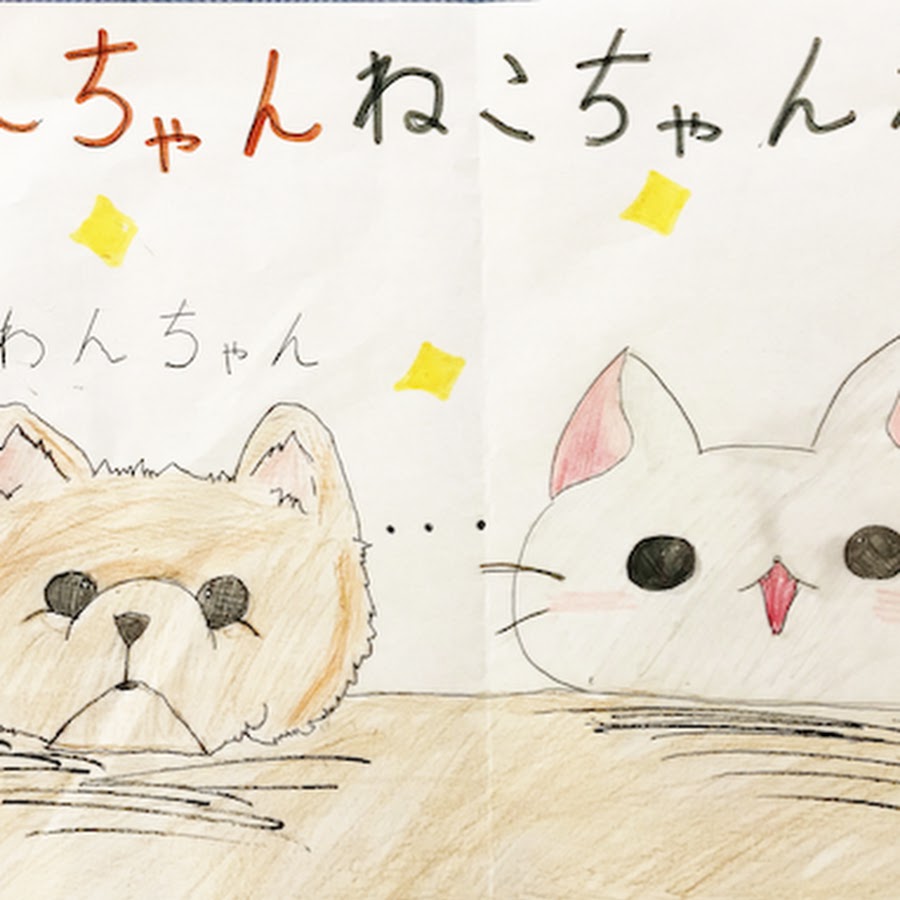 んちゃんねこちゃん
わんちゃん